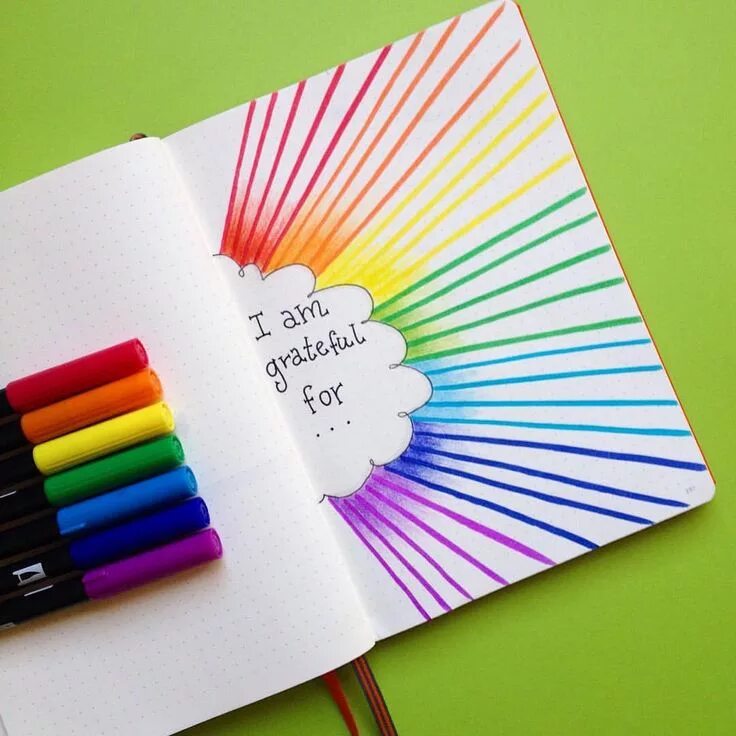 I am
grateful
for
...